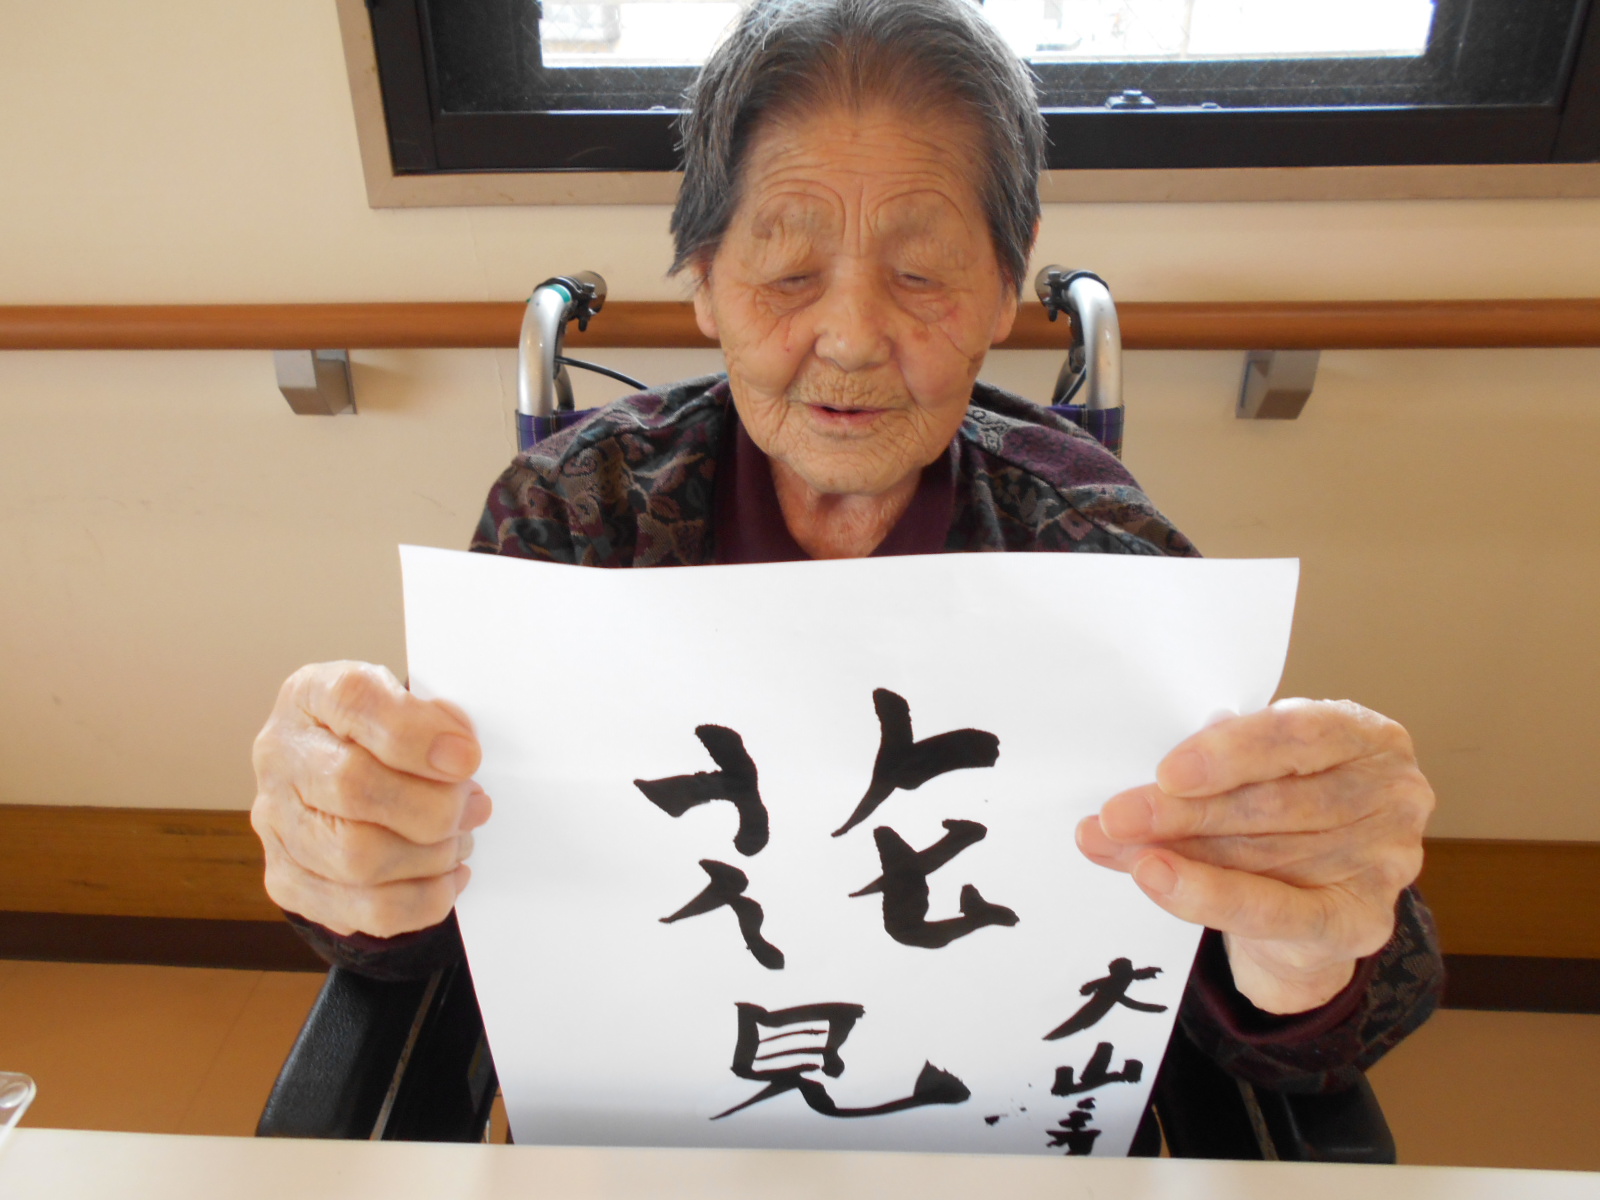 花見
大山